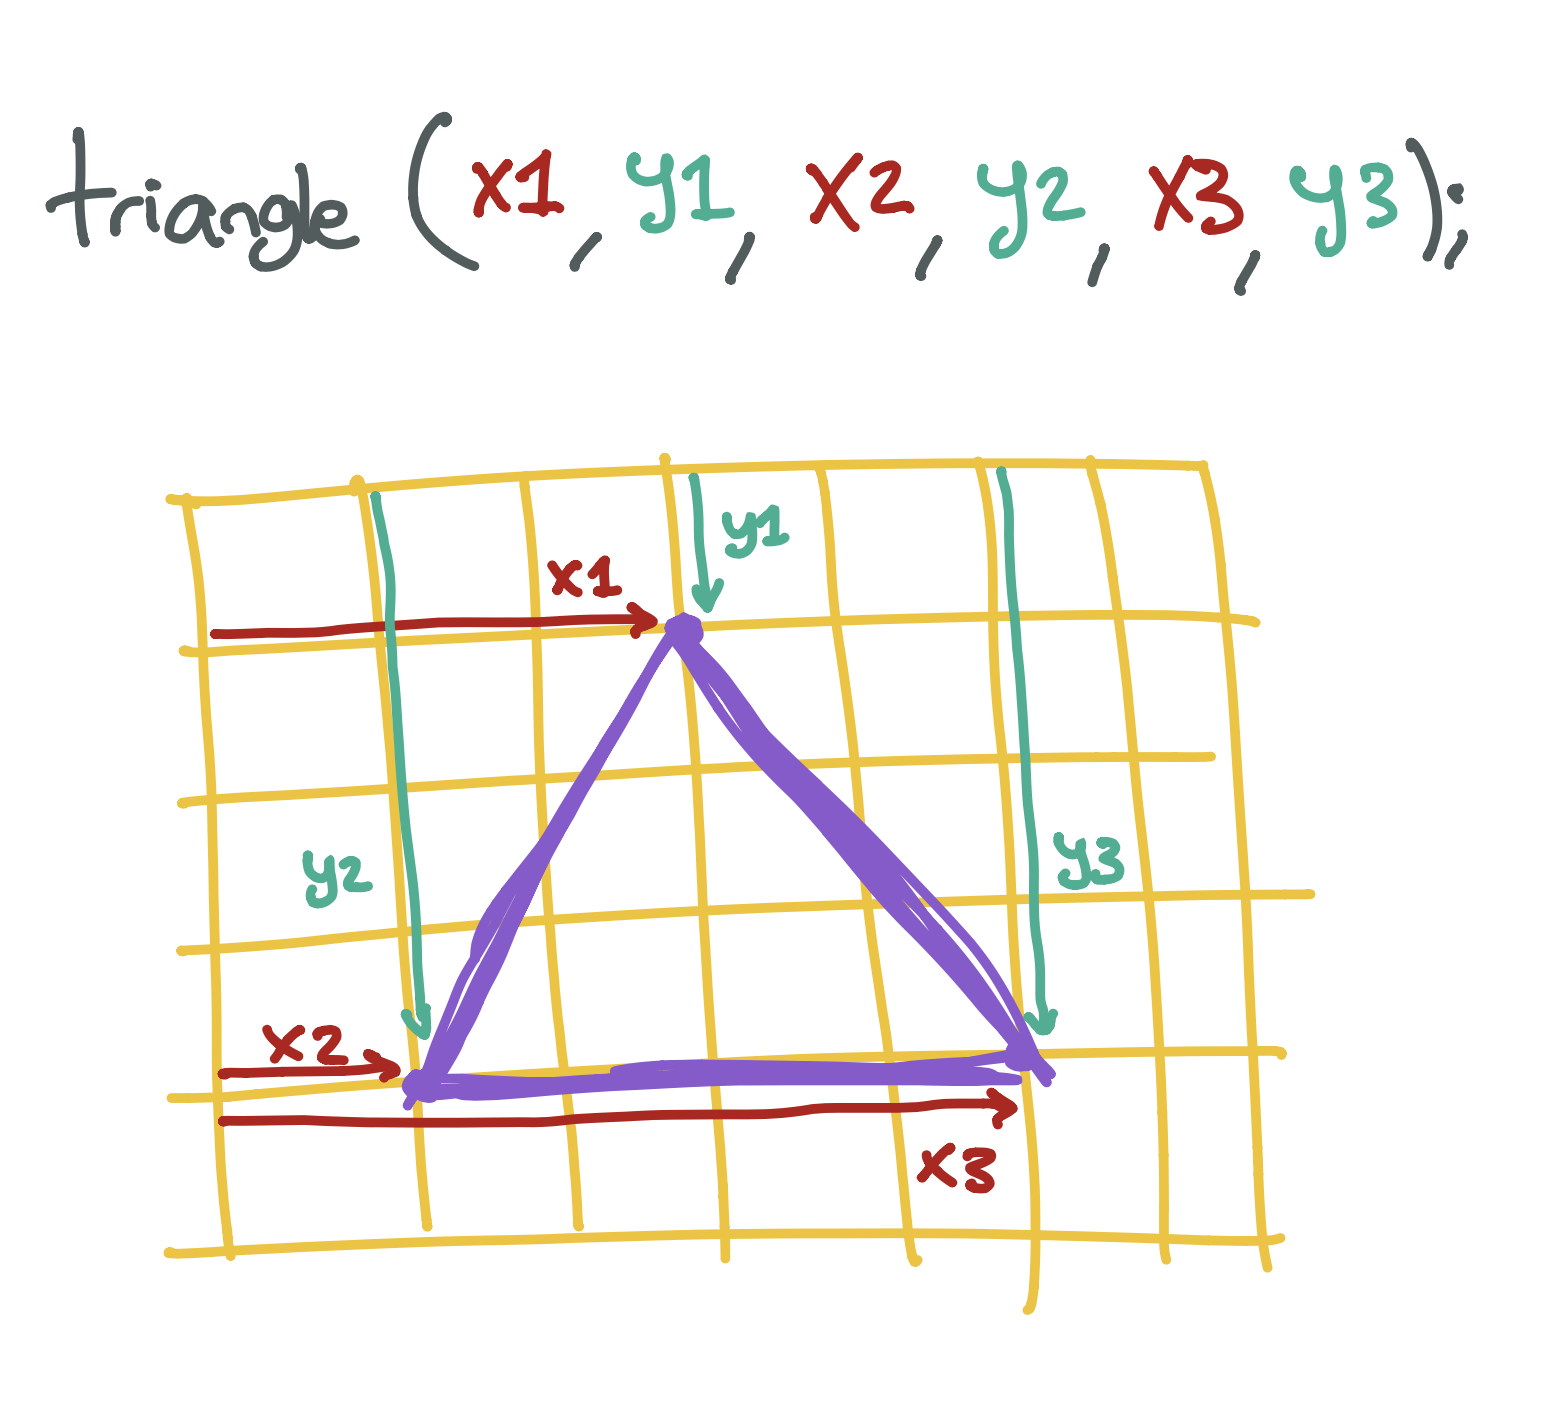 triangle (x1, y1, x2, y2, x3, y3);
y1
x1
y2
y3
x2
x3